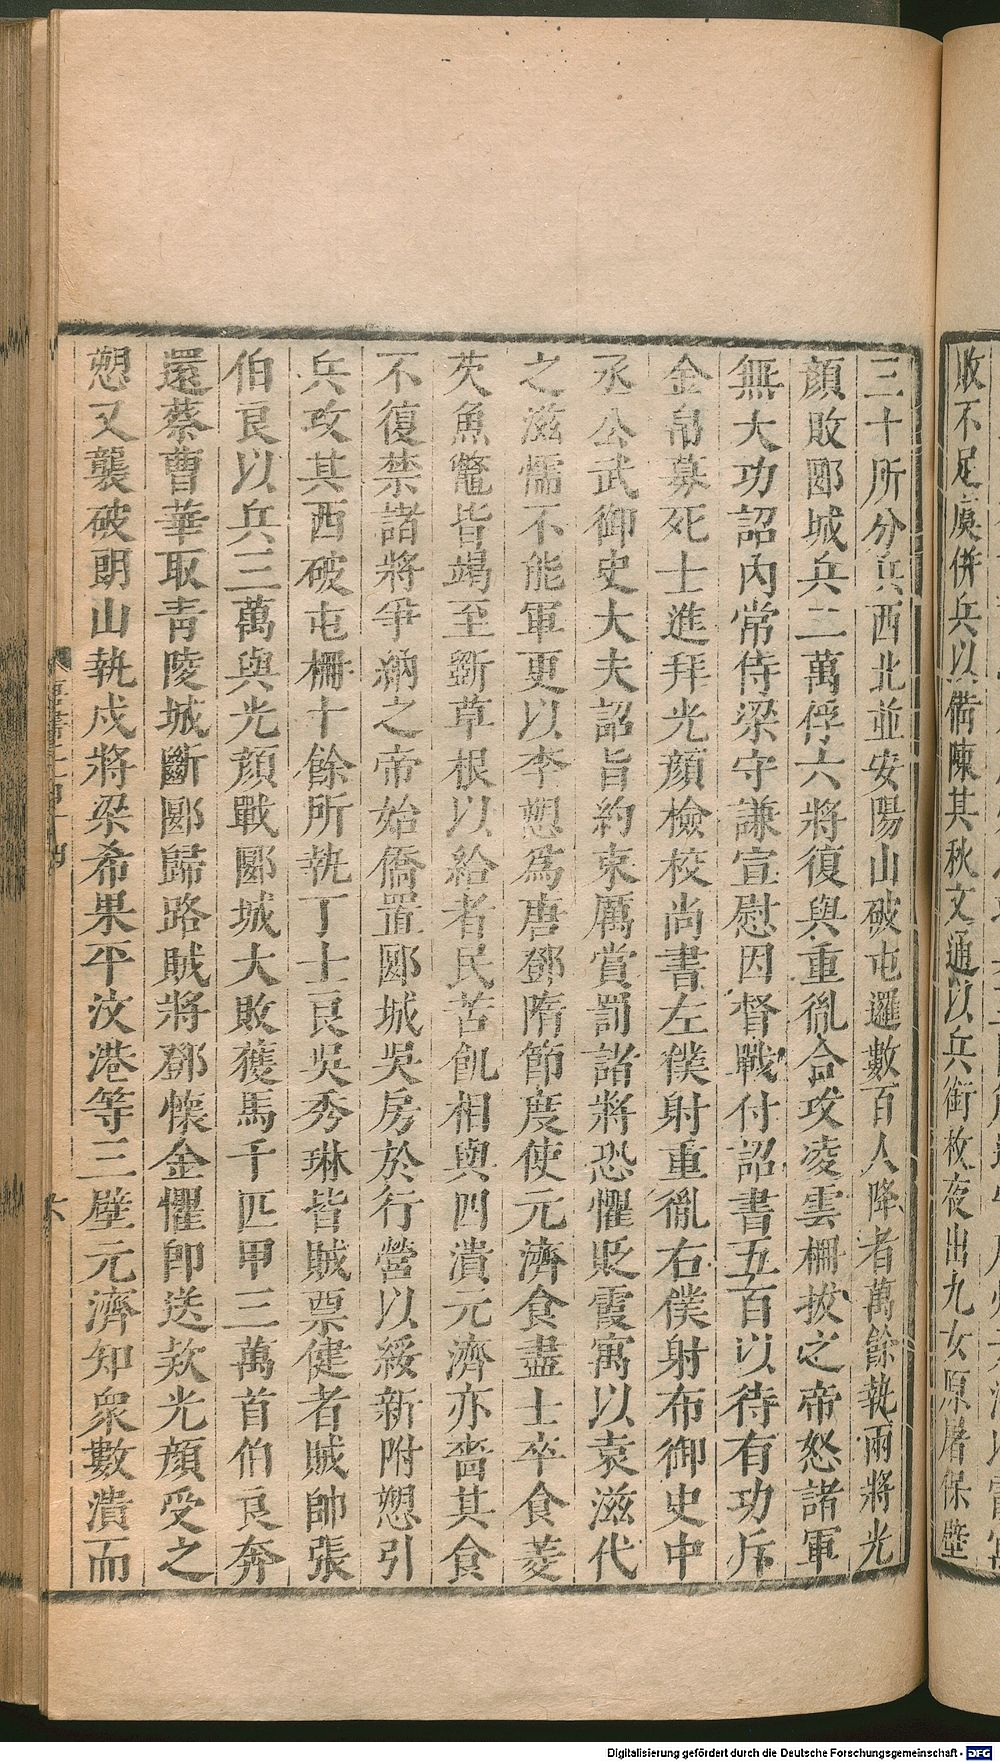 敗不足虞併兵以備陳其秋文通以兵銜枚夜出九女原屠保壁
三十所分兵西北並安陽山破屯邏數百人降者萬餘執兩將光
顏敗郾城兵二萬俘六將復與重胤合攻凌雲柵拔之帝怒諸軍
無大功詔內常侍梁守謙宣慰因督戰付詔書五百以待有功斥
金帛募死士進拜光顏檢校尚書左僕射重胤右僕射布御史中
丞公武御史大夫詔旨約束厲賞罰諸將恐懼貶霞寓以袁滋代
之滋懦不能軍更以李愬爲唐鄧隋節度使元濟食盡士卒食菱
芡魚鼈皆竭至斵草根以給者民苦飢相與四潰元濟亦嗇其食
不復禁諸將爭納之帝始僑置郾城吳房於行營以綏新附愬引
兵攻其西破屯柵十餘所執丁士良吳秀琳皆賊票健者賊帥張
伯良以兵三萬與光顏戰郾城大敗獲馬千匹甲三萬首伯良奔
還蔡曹華取靑陵城斷郾歸路賊將鄧懷金懼卽送款光顏受之
愬又襲破朗山執戍將梁希果平汶港等三壁元濟知衆數潰而
Digitalisierung gefördert durch die Deutsche Forschungsgemeinschaft - DFG